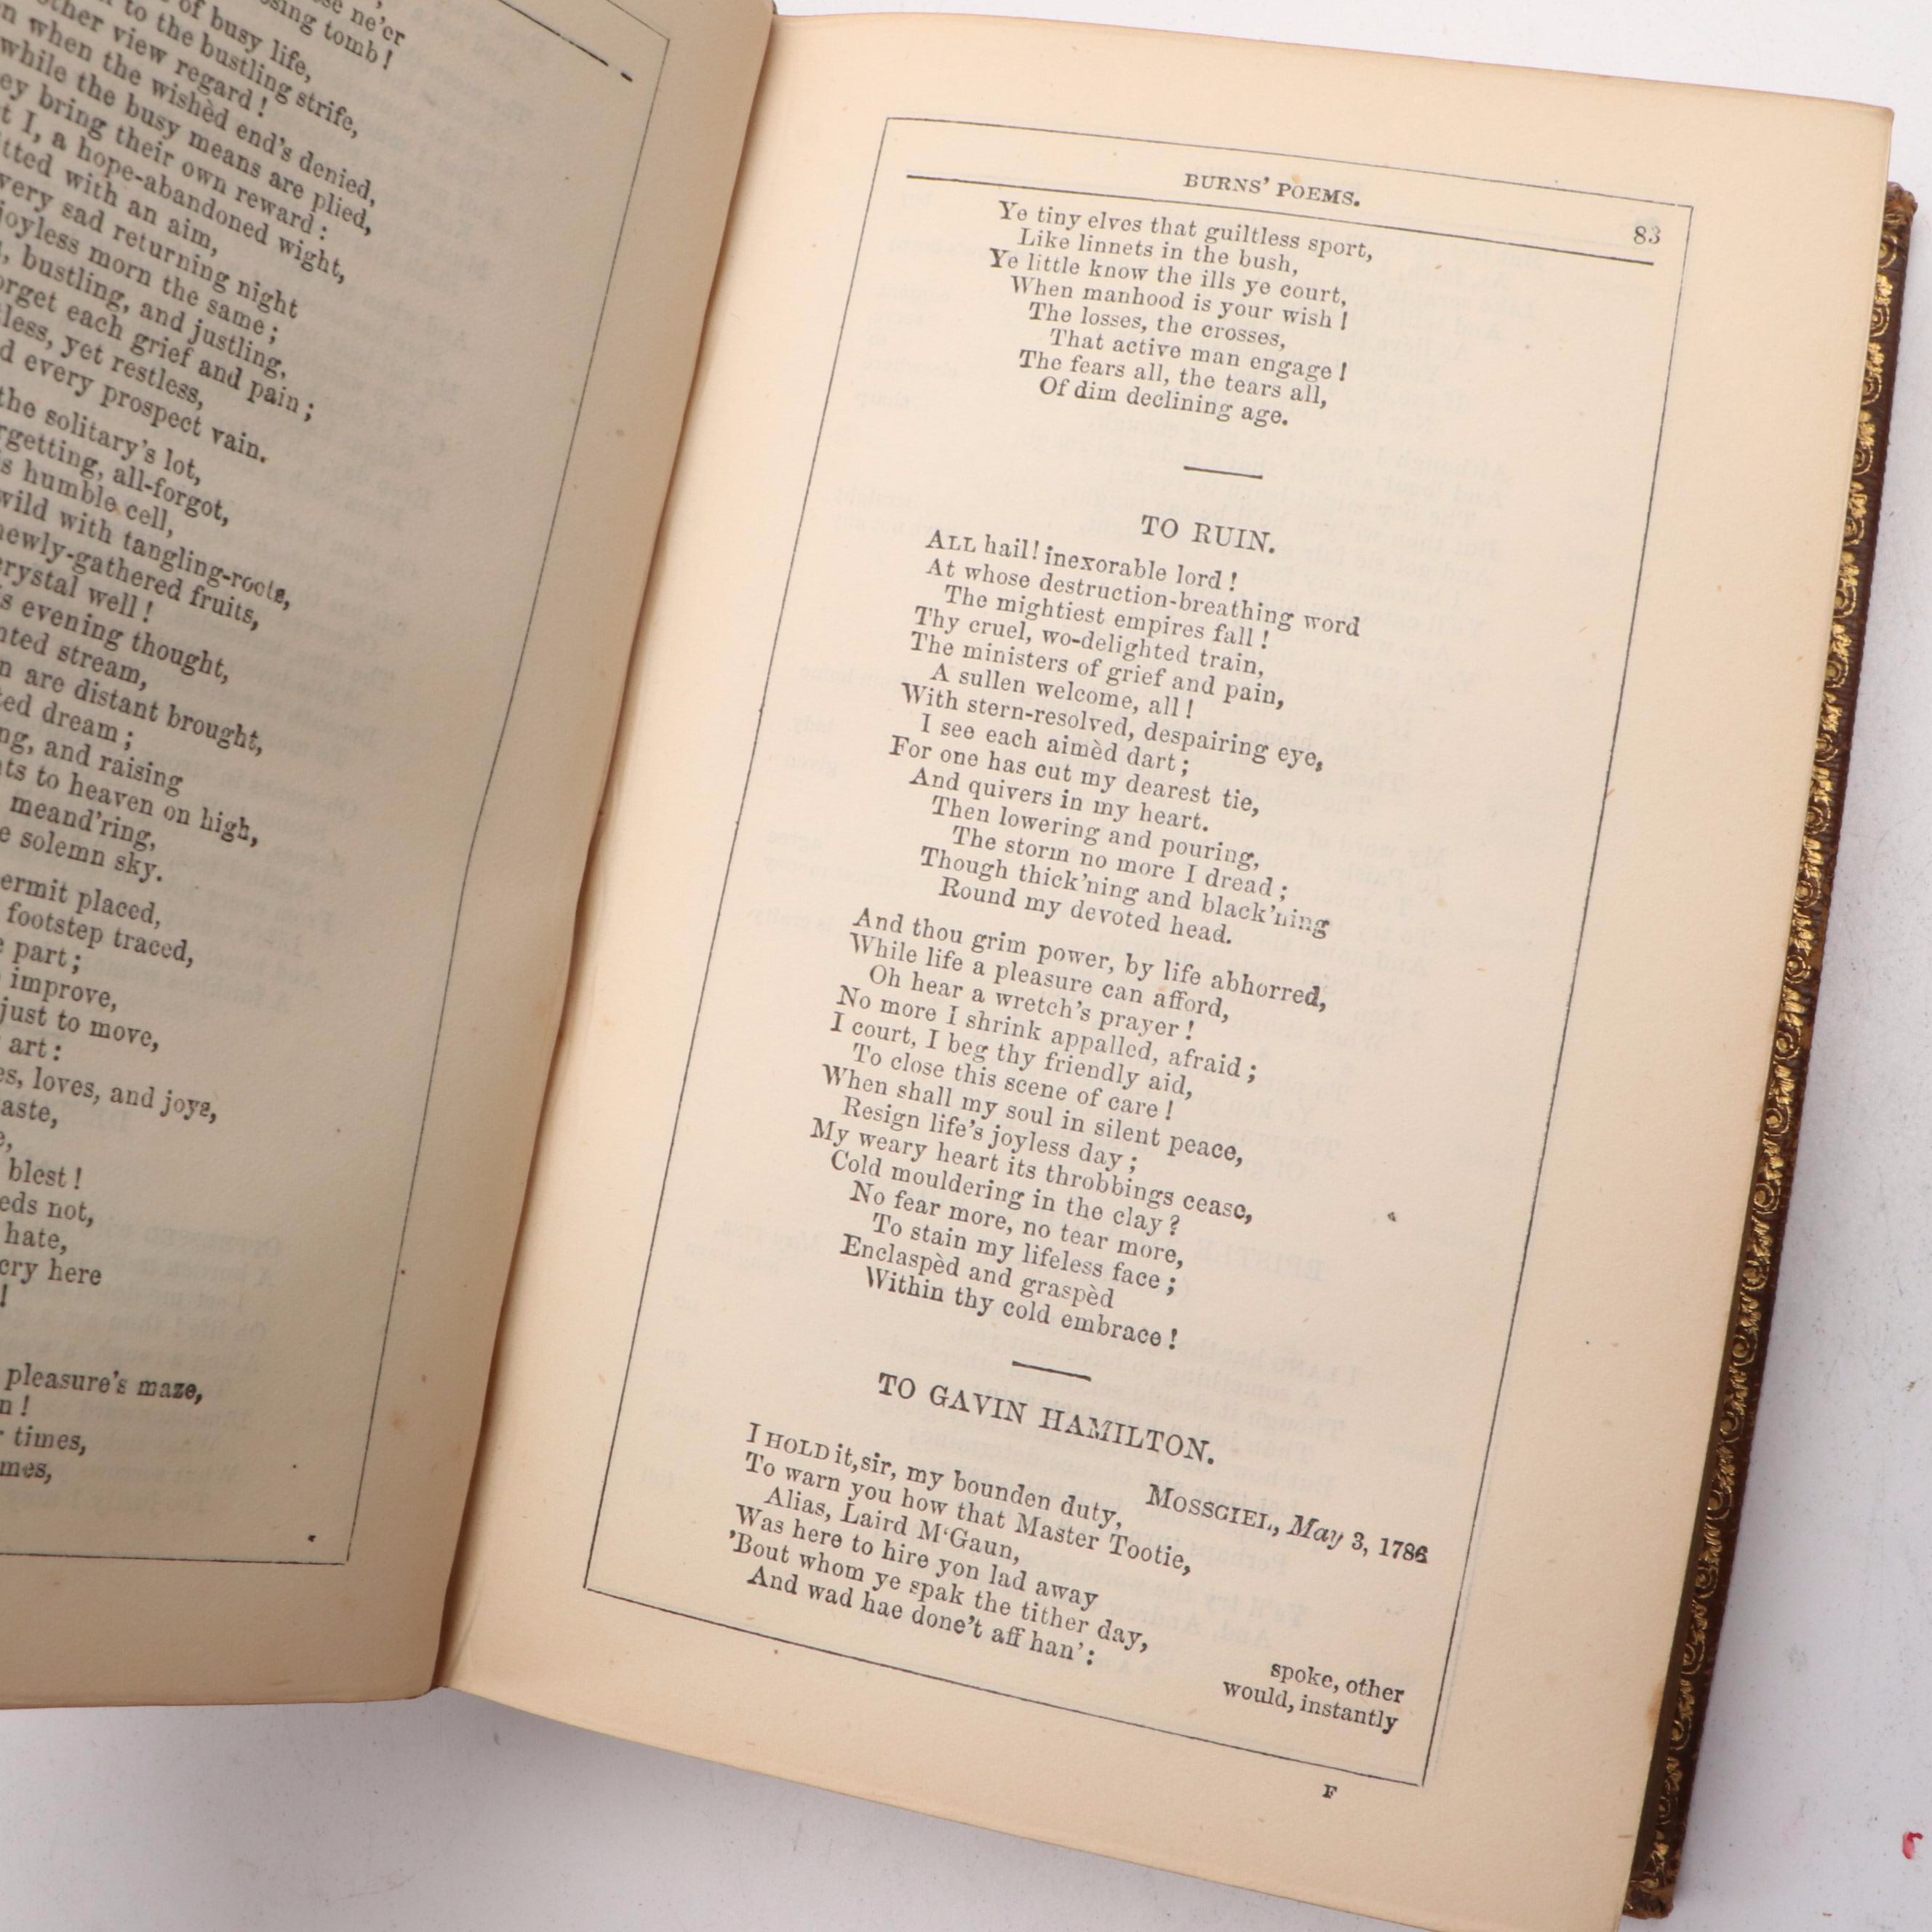 se ne'er
sing tomb!
of busy life,
to the bustling strife,
other view regard!
when the wishèd end's denied,
while the busy means are plied,
ey bring their own reward:
t I, a hope-abandoned wight,
itted with an aim,
very sad returning night
joyless morn the same;
, bustling, and justling,
orget each grief and pain;
less, yet restless,
d every prospect vain.
the solitary's lot,
rgetting, all-forgot,
s humble cell,
wild with tangling-roots,
newly-gathered fruits,
crystal well!
s evening thought,
nted stream,
n are distant brought,
ted dream;
ng, and raising
ts to heaven on high,
meand'ring,
e solemn sky.
ermit placed,
footstep traced,
e part;
improve,
just to move,
art:
es, loves, and joys,
aste,
e,
blest!
eds not,
hate,
cry here
!
pleasure's maze,
n!
times,
mes,
BURNS' POEMS.
83
Ye tiny elves that guiltless sport,
Like linnets in the bush,
Ye little know the ills ye court,
When manhood is your wish!
The losses, the crosses,
That active man engage!
The fears all, the tears all,
Of dim declining age.
TO RUIN.
ALL hail! inexorable lord!
At whose destruction-breathing word
The mightiest empires fall!
Thy cruel, wo-delighted train,
The ministers of grief and pain,
A sullen welcome, all!
With stern-resolved, despairing eye,
I see each aimèd dart;
For one has cut my dearest tie,
And quivers in my heart.
Then lowering and pouring,
The storm no more I dread;
Though thick'ning and black'ning
Round my devoted head.
And thou grim power, by life abhorred,
While life a pleasure can afford,
Oh hear a wretch's prayer!
No more I shrink appalled, afraid;
I court, I beg thy friendly aid,
To close this scene of care!
When shall my soul in silent peace,
Resign life's joyless day;
My weary heart its throbbings cease,
Cold mouldering in the clay?
No fear more, no tear more,
To stain my lifeless face;
Enclaspèd and graspèd
Within thy cold embrace!
TO GAVIN HAMILTON.
MOSSGIEL, May 3, 1786
I HOLD it, sir, my bounden duty,
To warn you how that Master Tootie,
Alias, Laird M'Gaun,
Was here to hire yon lad away
'Bout whom ye spak the tither day,
And wad hae done't aff han':
spoke, other
would, instantly
F